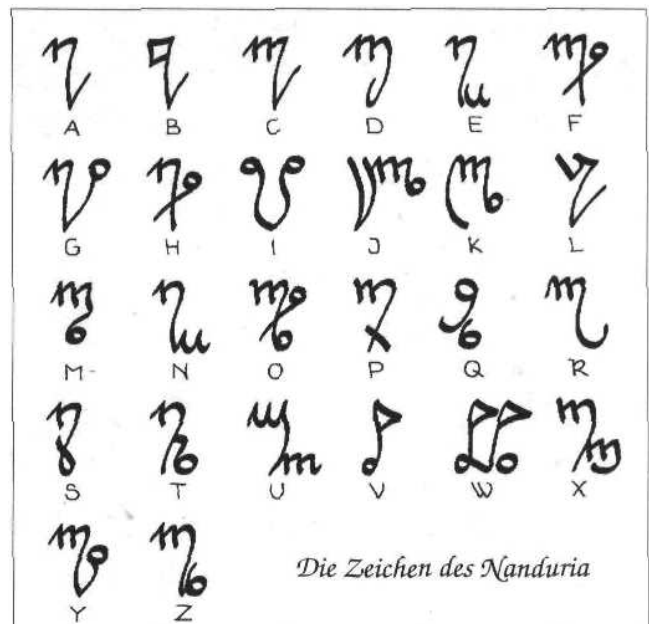 A B C D E F
G H I J K L
M N O P Q R
S T U V W X
Y Z
Die Zeichen des Nanduria